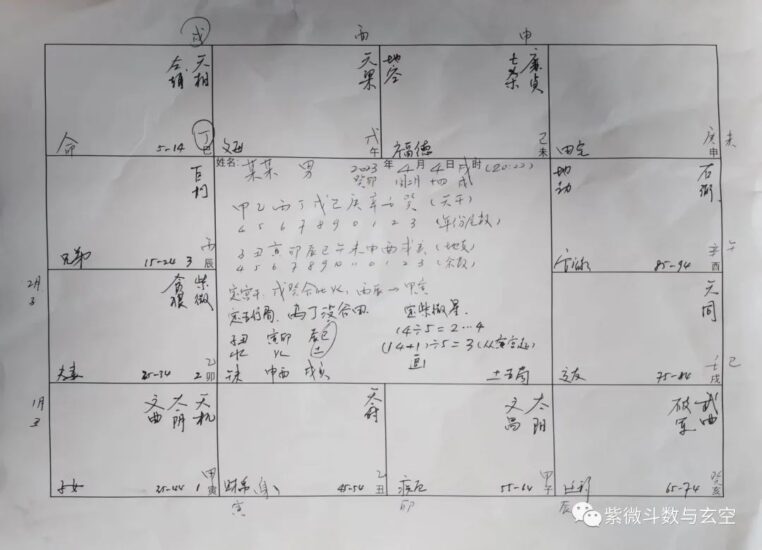 戌 丙 申
天相
命 5-14 丁巳
天梁
戊午
地空 廉贞
七杀
福德 己未
田宅 庚申 未
巨门
兄弟 15-24 3 丙辰
姓名: 某某 男 2023年4月4日戌时(20:22)
癸卯 闰2月 十四 戌
甲乙丙丁戊己庚辛壬癸(天干)
4 5 6 7 8 9 0 1 2 3 (年份尾数)
子丑寅卯辰巳午未申酉戌亥(地支)
4 5 6 7 8 9 10 11 0 1 2 3 (余数)
丙辰 甲寅
定紫微星
14÷5=2…4
(14+1)÷5=3(从寅宫起)
子丑 寅卯 辰巳
水 火 土
午未 申酉 戌亥
土五局
地劫 右弼
85-94 辛酉 午
2月
贪狼 紫微
夫妻 25-34 2 乙卯
天同
交友 75-84 壬戌 巳
1月
丑
文曲 太阴 天机
子女 35-44 1 甲寅
天府
财帛(身) 45-54 乙丑
寅
文昌 太阳
疾厄 55-64 甲子
卯
破军 武曲
65-74 癸亥
辰
紫微斗数与玄空